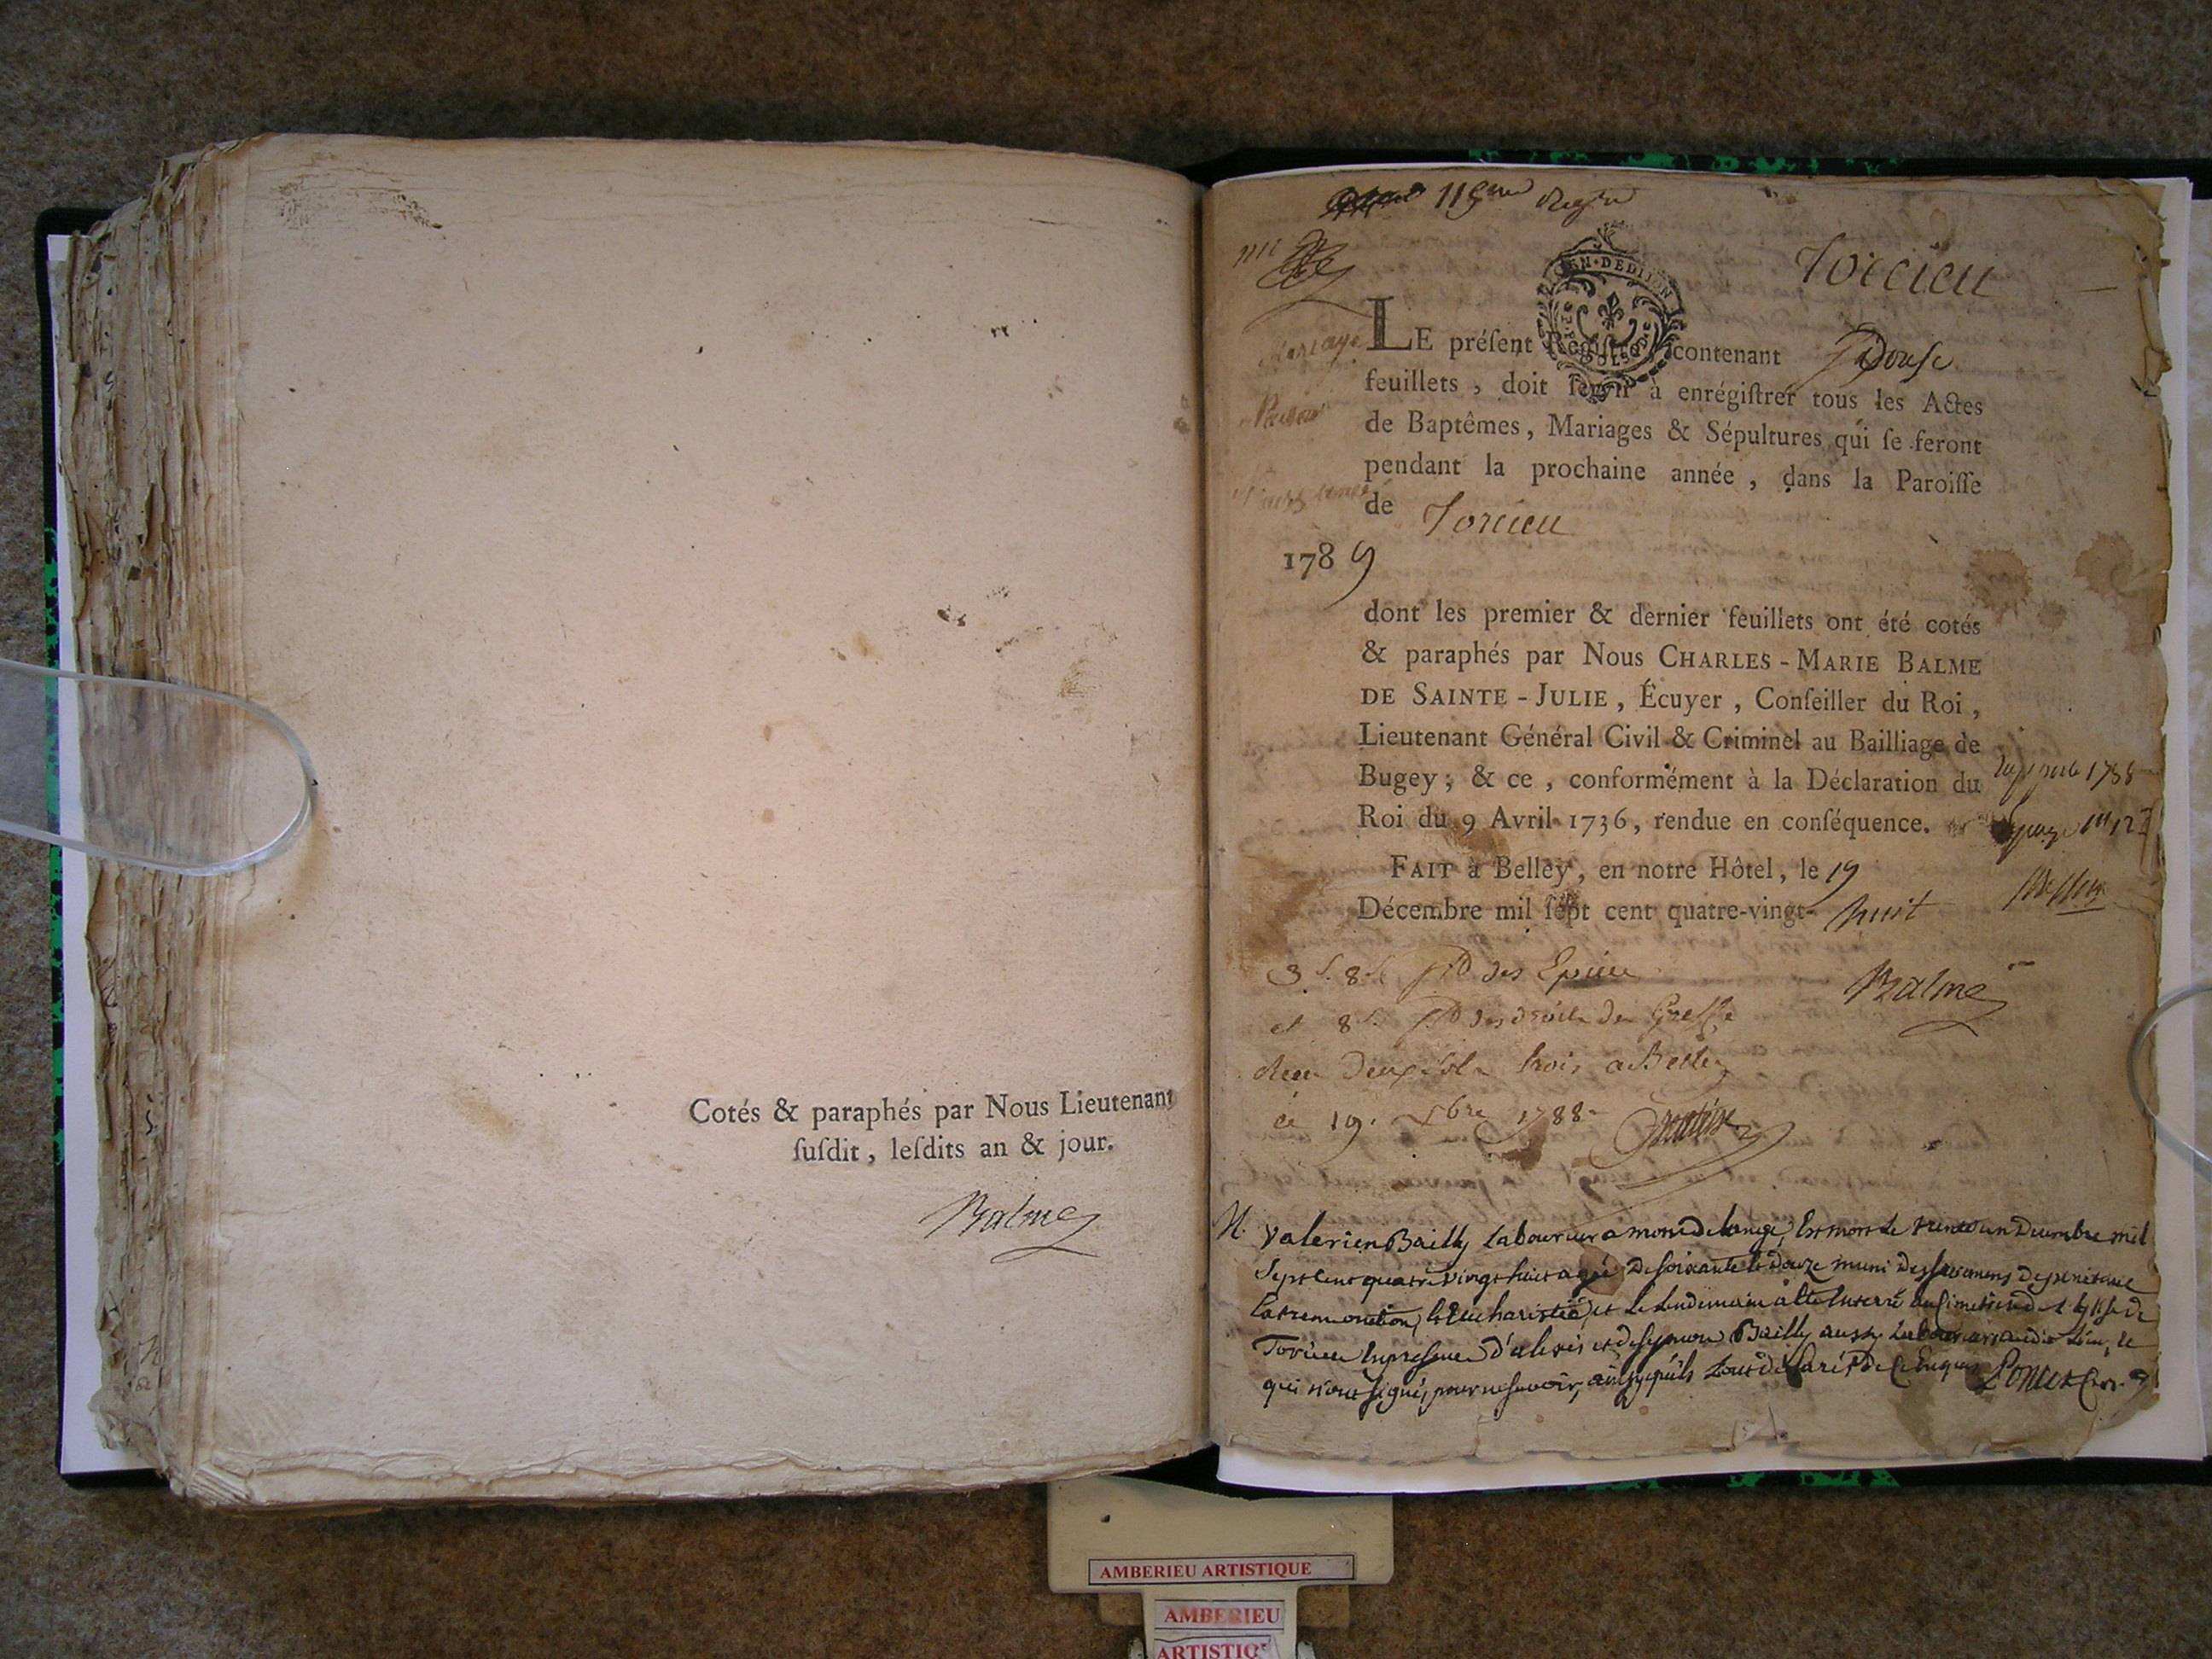 Cotés & paraphés par Nous Lieutenant
ſuſdit, leſdits an & jour.
Balme
Torcieu
GEN·DE DIJON
LE préſent Regiſtre contenant Douse
feuillets, doit ſervir à enrégiſtrer tous les Actes
de Baptêmes, Mariages & Sépultures qui ſe feront
pendant la prochaine année, dans la Paroiſſe
de Torcieu
1789
dont les premier & dernier feuillets ont été cotés
& paraphés par Nous CHARLES-MARIE BALME
DE SAINTE-JULIE, Écuyer, Conſeiller du Roi,
Lieutenant Général Civil & Criminel au Bailliage de
Bugey; & ce, conformément à la Déclaration du
Roi du 9 Avril 1736, rendue en conſéquence.
FAIT à Belley, en notre Hôtel, le 19
Décembre mil ſept cent quatre-vingt-huit
Balme
3 s. 8 d. des Epices
et 8 s. des droits de Greffe
Recu deux sols trois a Belley
ce 19. Xbre 1788
Valerien Bailly Laboureur a mont de lange, Est mort le trente un Decembre mil
Sept Cent quatre vingt huit agé de soixante et douze muni des sacremens de penitence
Extreme onction, et Eucharistie, et le lendemain a été Enterré au Cimetiere de l'Eglise de
Torcieu En presence d'alexis et de Bailly aussy Laboureurs audit Lieu,
qui n'ont signé, pour ne savoir, ainsy qu'ils l'ont déclaré de ce Enquis Poncet Curé
AMBERIEU ARTISTIQUE
AMBERIEU
ARTISTIQ